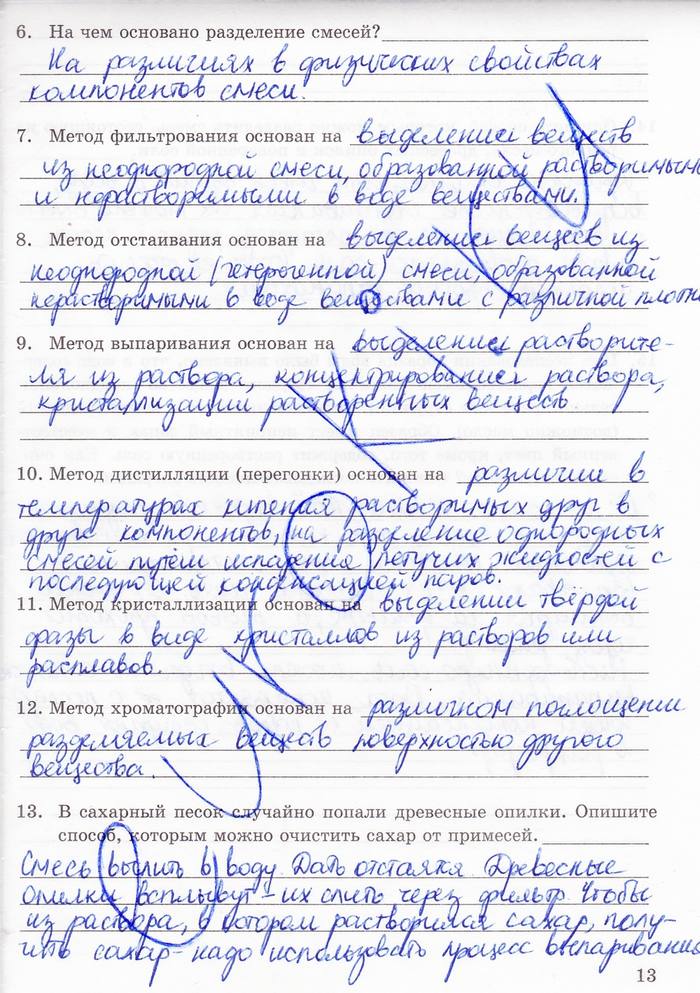 6. На чем основано разделение смесей?
На различиях в физических свойствах
компонентов смеси.
7. Метод фильтрования основан на выделении веществ
из неоднородной смеси, образованной растворимыми
и нерастворимыми в воде веществами.
8. Метод отстаивания основан на выделении веществ из
неоднородной (гетерогенной) смеси, образованной
нерастворимыми в воде веществами с различной плотн
9. Метод выпаривания основан на выделении растворите-
ля из раствора, концентрировании раствора,
кристаллизации растворенных веществ
10. Метод дистилляции (перегонки) основан на различие в
температурах кипения растворимых друг в
друге компонентов, на разделение однородных
смесей путём испарения летучих жидкостей с
последующей конденсацией паров.
11. Метод кристаллизации основан на выделении твёрдой
фазы в виде кристаллов из растворов или
расплавов.
12. Метод хроматографии основан на различном поглощении
разделяемых веществ поверхностью другого
вещества.
13. В сахарный песок случайно попали древесные опилки. Опишите
способ, которым можно очистить сахар от примесей.
Смесь вылить в воду. Дать отстаяться. Древесные
опилки всплывут - их слить через фильтр. Чтобы
из раствора, в котором растворился сахар, полу-
чить сахар - надо использовать процесс выпаривания
13